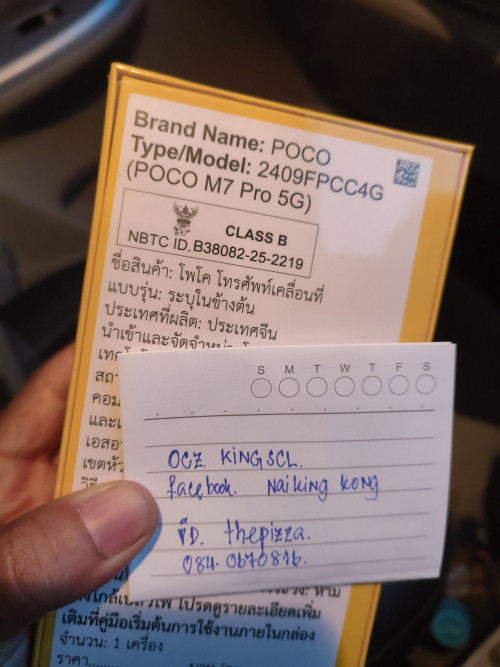 Brand Name: POCO
Type/Model: 2409FPCC4G
(POCO M7 Pro 5G)
CLASS B
NBTC ID. B38082-25-2219
ชื่อสินค้า: โพโค โทรศัพท์เคลื่อนที่
แบบรุ่น: ระบุในข้างต้น
ประเทศที่ผลิต: ประเทศจีน
นำเข้าและจัดจำหน่าย
S M T W T F S
OCZ. KINGSCL.
facebook. Naiking kong
ID. thepizza.
084-0670816.
โปรดดูรายละเอียดเพิ่ม
เติมที่คู่มือเริ่มต้นการใช้งานภายในกล่อง
จำนวน: 1 เครื่อง
ราคา